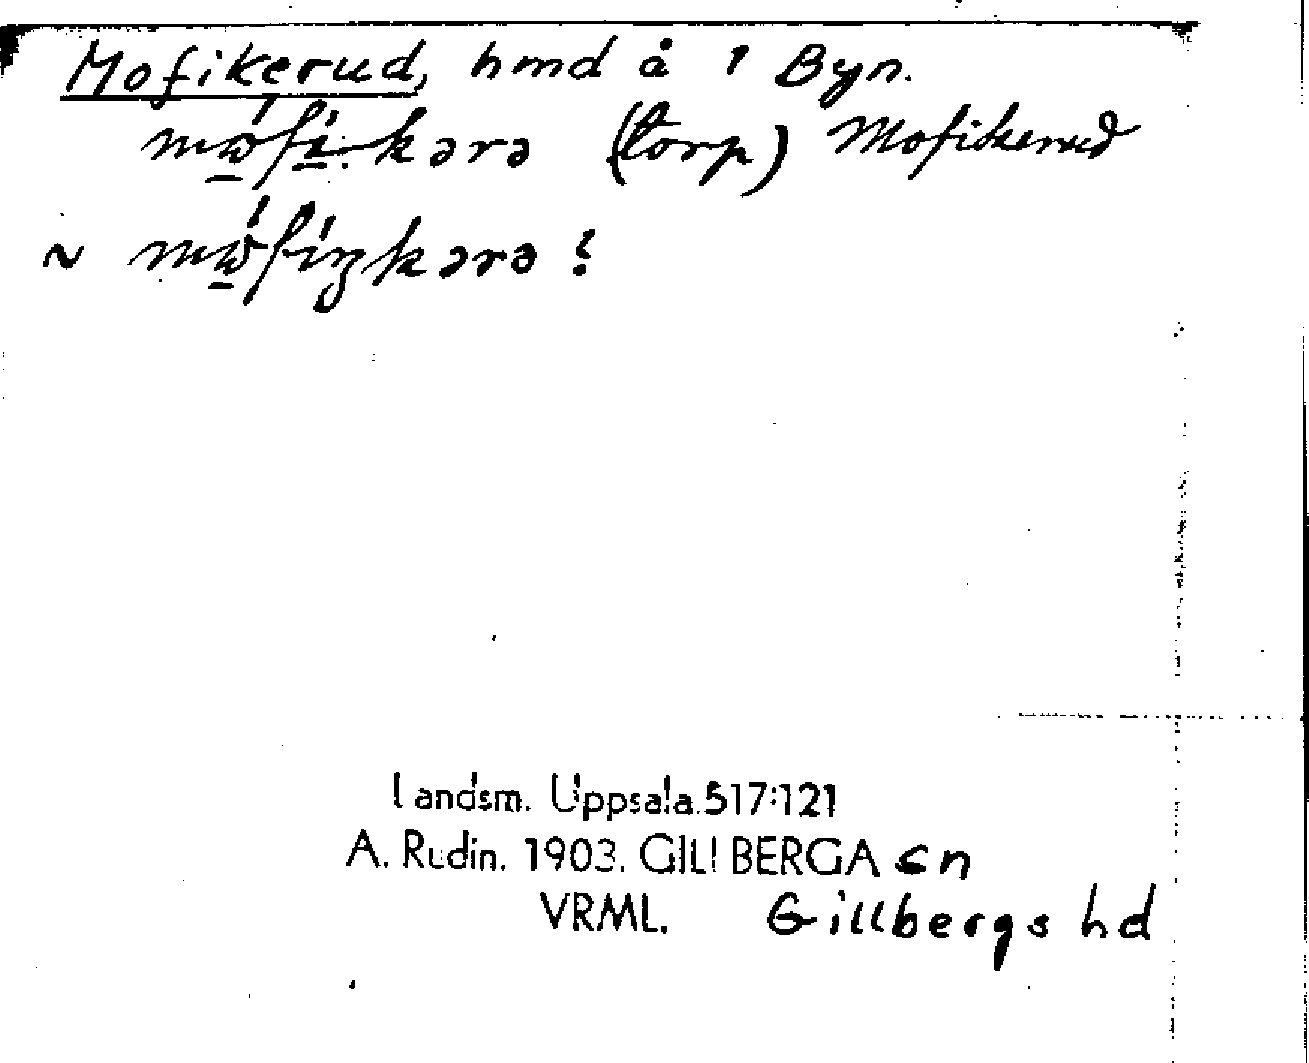 Mofikerud, hmd å 1 Byn.
(torp) Mofikerud
~
Landsm. Uppsala.517:121
A. Rudin. 1903. GILLBERGA sn
VRML. Gillbergs hd